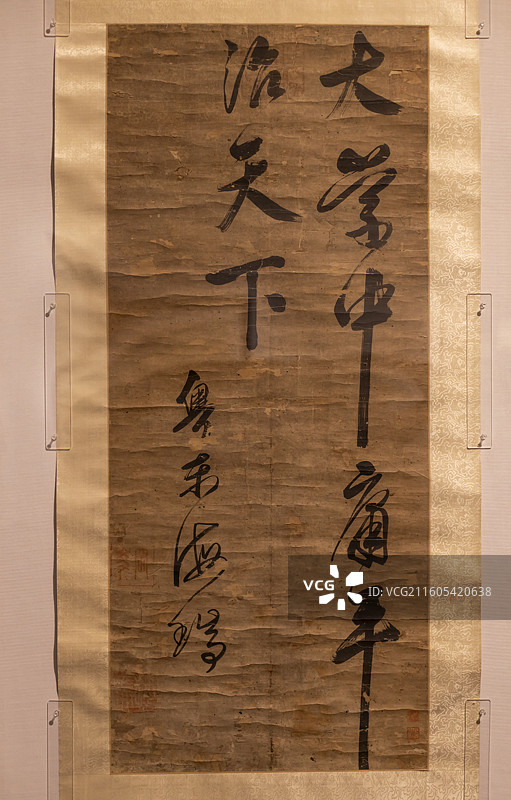 大學中庸平
治天下
粵東海瑞
VCG
ID: VCG211605420638